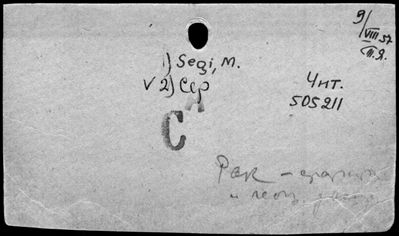 9/VIII 57
П.Я.
1) Segi, M.
V 2) Сер
Чит.
505211
A
C
Рак –
и